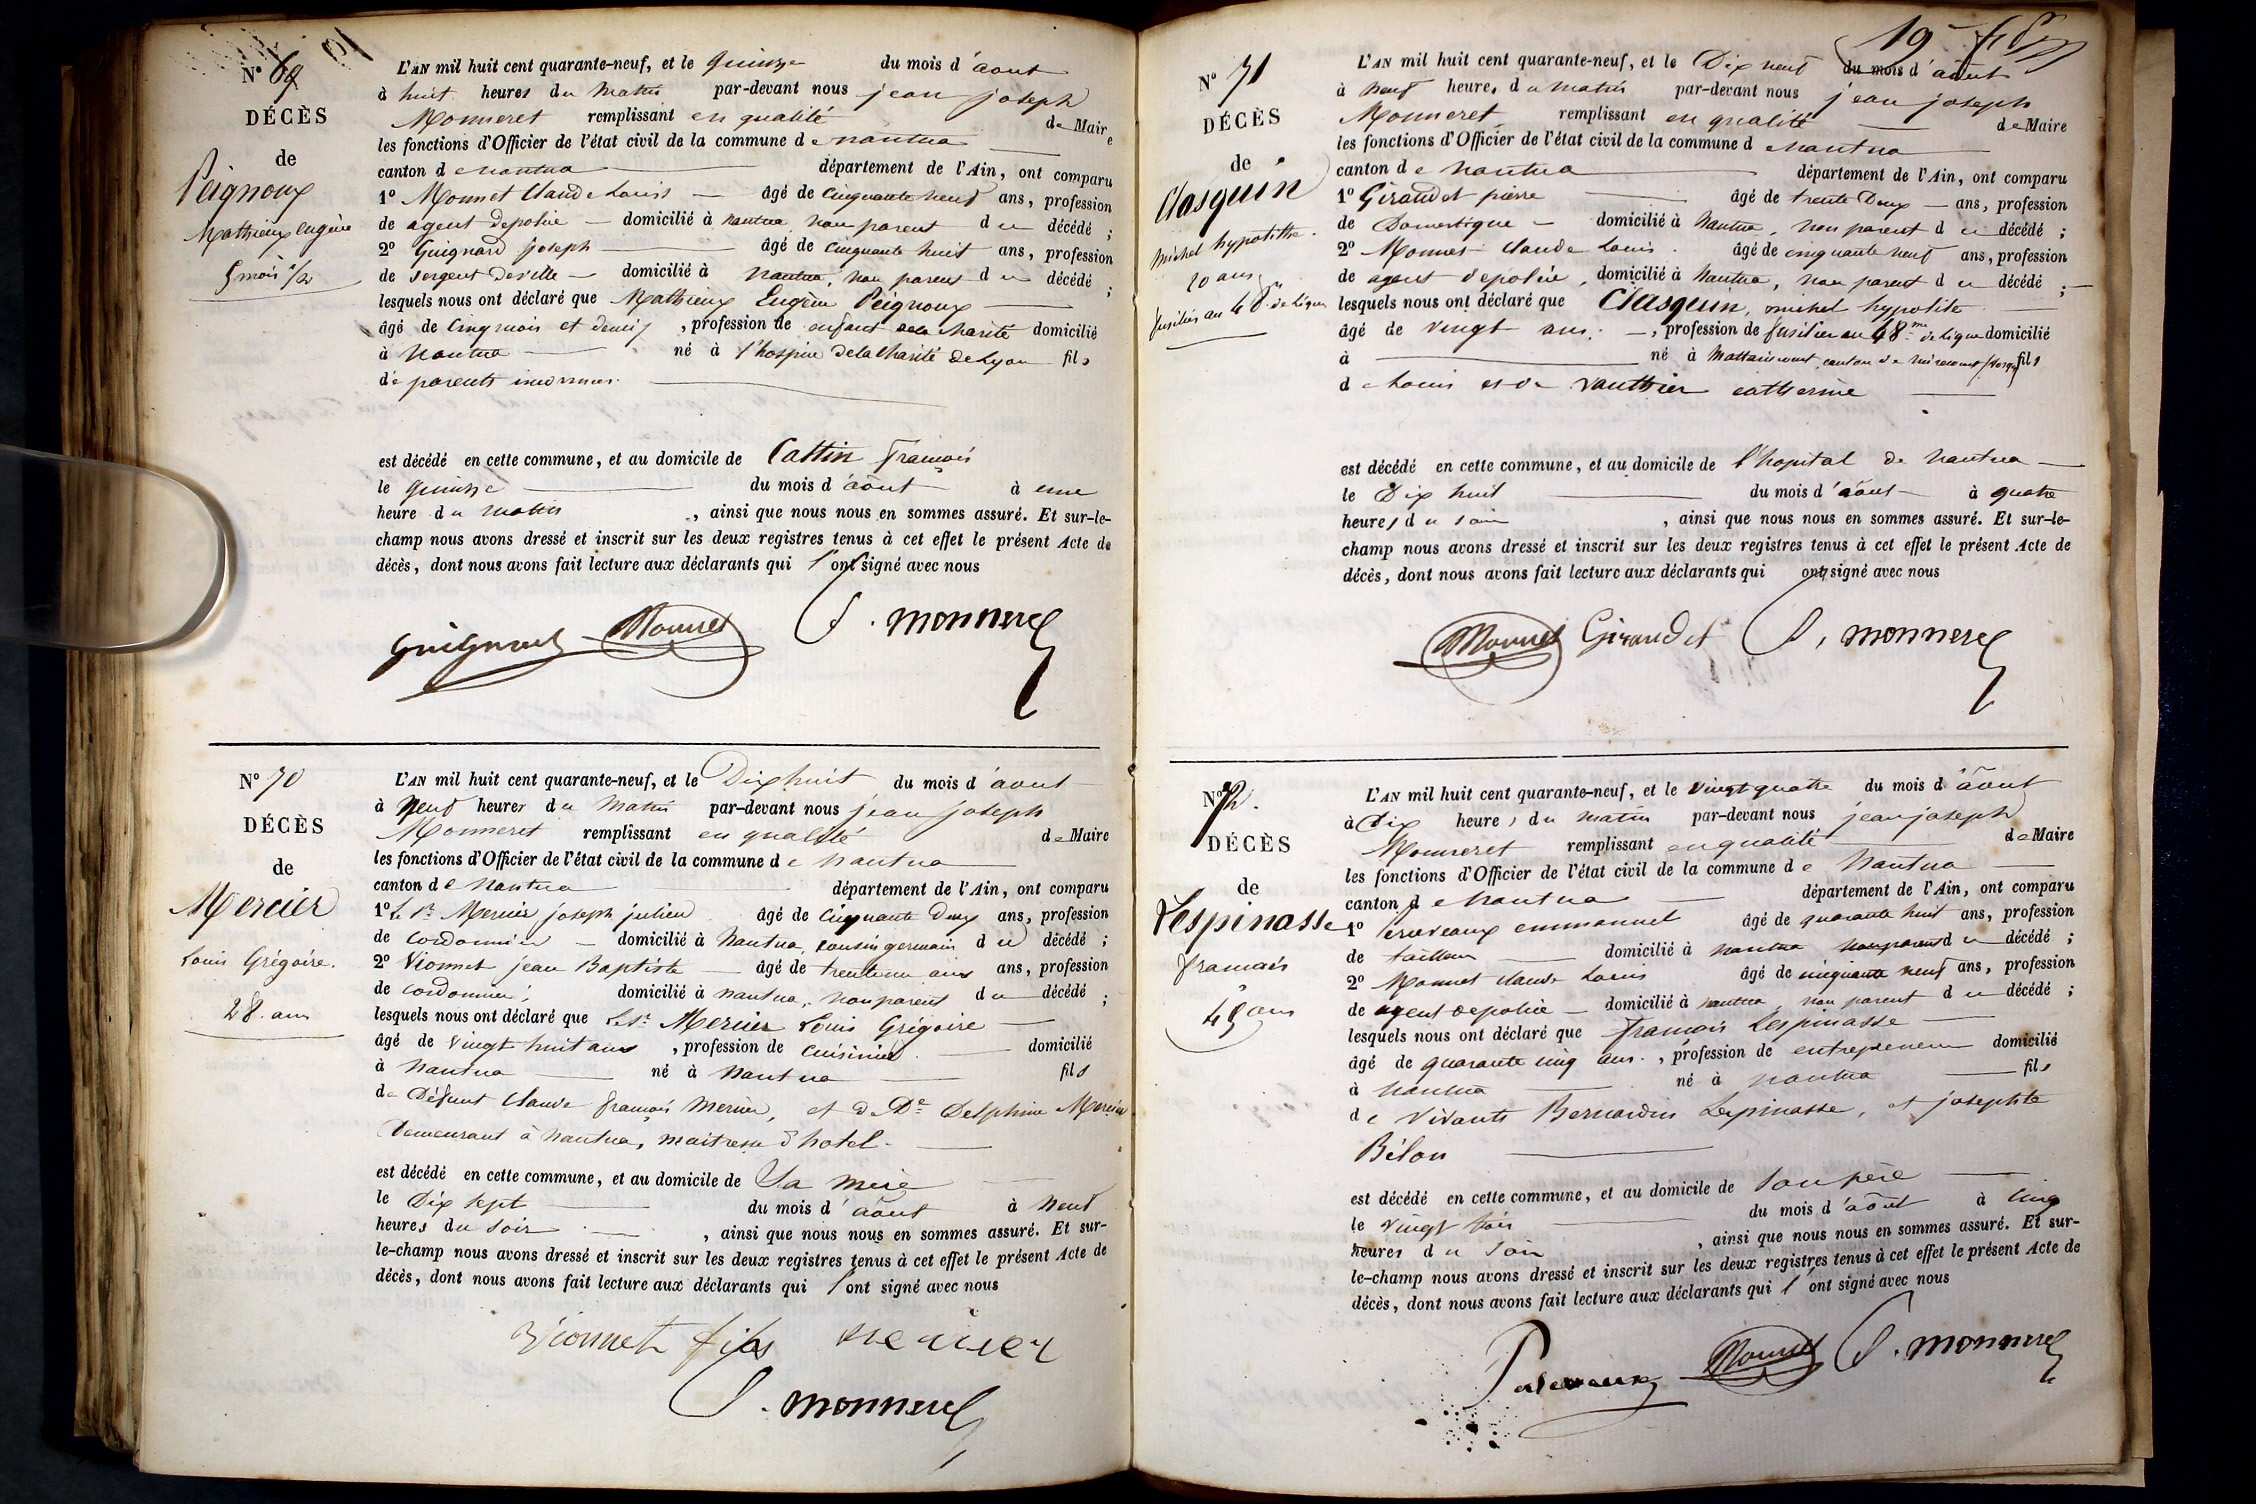 N° 69
DÉCÈS
de
Peignoux
Mathieux Eugène
5 mois 1/2
L'AN mil huit cent quarante-neuf, et le quinze du mois d'aout
à huit heures du matin par-devant nous jean joseph
Monneret remplissant en qualité de Maire
les fonctions d'Officier de l'état civil de la commune de nantua
canton de nantua département de l'Ain, ont comparu
1° Monnet Claude Louis âgé de cinquante neuf ans, profession
de agent de police domicilié à nantua, non parent du décédé ;
2° Guignard joseph âgé de cinquante huit ans, profession
de sergent de ville domicilié à nantua, non parent du décédé ;
lesquels nous ont déclaré que Mathieux Eugène Peignoux
âgé de cinq mois et demi, profession de enfant de la charité domicilié
à nantua né à l'hospice de la charité de Lyon fils
de parents inconnus.
est décédé en cette commune, et au domicile de Cattin françois
le quinze du mois d'août à une
heure du matin, ainsi que nous nous en sommes assuré. Et sur-le-
champ nous avons dressé et inscrit sur les deux registres tenus à cet effet le présent Acte de
décès, dont nous avons fait lecture aux déclarants qui l'ont signé avec nous
Guignard Monnet J. Monneret
N° 70
DÉCÈS
de
Mercier
Louis Grégoire.
28. ans
L'AN mil huit cent quarante-neuf, et le Dix huit du mois d'aout
à neuf heures du matin par-devant nous jean joseph
Monneret remplissant en qualité de Maire
les fonctions d'Officier de l'état civil de la commune de nantua
canton de nantua département de l'Ain, ont comparu
1° le Sr. Mercier joseph julien âgé de cinquante deux ans, profession
de cordonnier domicilié à nantua, cousin germain du décédé ;
2° Vionnet jean Baptiste âgé de trente un ans ans, profession
de cordonnier, domicilié à nantua, non parent du décédé ;
lesquels nous ont déclaré que le Sr. Mercier Louis Grégoire
âgé de vingt huit ans, profession de cuisinier domicilié
à nantua né à nantua fils
de Défunt Claude françois Mercier, et de De. Delphine Mercier
demeurant à nantua, maitresse d'hotel.
est décédé en cette commune, et au domicile de Sa mère
le Dix sept du mois d'août à neuf
heures du soir, ainsi que nous nous en sommes assuré. Et sur-
le-champ nous avons dressé et inscrit sur les deux registres tenus à cet effet le présent Acte de
décès, dont nous avons fait lecture aux déclarants qui l'ont signé avec nous
Vionnet fils Mercier
J. Monneret
19
N° 71
DÉCÈS
de
Clasquin
Michel hypolithe.
20 ans
fusilier au 48e. de Ligne
L'AN mil huit cent quarante-neuf, et le Dix neuf du mois d'août
à neuf heures du matin par-devant nous jean joseph
Monneret remplissant en qualité de Maire
les fonctions d'Officier de l'état civil de la commune de nantua
canton de nantua département de l'Ain, ont comparu
1° Giraudet pierre âgé de trente Deux ans, profession
de Domestique domicilié à Nantua, non parent du décédé ;
2° Monnet Claude Louis âgé de cinquante neuf ans, profession
de agent de police, domicilié à Nantua, non parent du décédé ;
lesquels nous ont déclaré que Clasquin, michel hypolite
âgé de vingt ans, profession de fusilier au 48me de Ligne domicilié
à né à Mattaincourt, canton de mirecourt (Vosges) fils
de Louis et de Vauthier catherine
est décédé en cette commune, et au domicile de l'hopital de nantua
le Dix huit du mois d'août à quatre
heures du soir, ainsi que nous nous en sommes assuré. Et sur-le-
champ nous avons dressé et inscrit sur les deux registres tenus à cet effet le présent Acte de
décès, dont nous avons fait lecture aux déclarants qui ont signé avec nous
Monnet Giraudet J. Monneret
N° 72.
DÉCÈS
de
Lespinasse
françois
45 ans
L'AN mil huit cent quarante-neuf, et le vingt quatre du mois d'août
à Dix heures du matin par-devant nous jean joseph
Monneret remplissant en qualité de Maire
les fonctions d'Officier de l'état civil de la commune de Nantua
canton de nantua département de l'Ain, ont comparu
1° emmanuel âgé de quarante huit ans, profession
de tailleur domicilié à nantua non parent du décédé ;
2° Monnet Claude Louis âgé de cinquante neuf ans, profession
de agent de police domicilié à nantua, non parent du décédé ;
lesquels nous ont déclaré que françois Lespinasse
âgé de quarante cinq ans., profession de entrepreneur domicilié
à nantua né à nantua fils
de vivants Bernardin Lespinasse, et josephte
Bélon
est décédé en cette commune, et au domicile de son père
le vingt trois du mois d'août à cinq
heures du soir, ainsi que nous nous en sommes assuré. Et sur-
le-champ nous avons dressé et inscrit sur les deux registres tenus à cet effet le présent Acte de
décès, dont nous avons fait lecture aux déclarants qui l'ont signé avec nous
Monnet J. Monneret